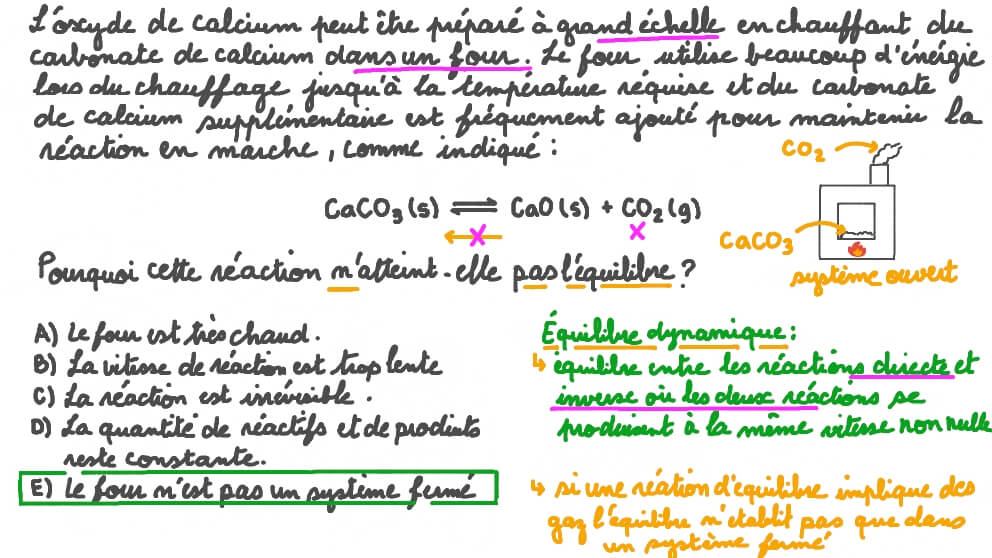 L'oxyde de calcium peut être préparé à grand échelle en chauffant du
carbonate de calcium dans un four. Le four utilise beaucoup d'énergie
lors du chauffage jusqu'à la température requise et du carbonate
de calcium supplémentaire est fréquement ajouté pour maintenir la
réaction en marche, comme indiqué :
CO₂
CaCO₃(s) ⇌ CaO(s) + CO₂(g)
CaCO₃
système ouvert
Pourquoi cette réaction n'atteint-elle pas l'équilibre ?
A) Le four est très chaud.
B) La vitesse de réaction est trop lente
C) La réaction est irréversible.
D) La quantité de réactifs et de produits
reste constante.
E) Le four n'est pas un système fermé
Équilibre dynamique :
↳ équilibre entre les réactions directe et
inverse où les deux réactions se
produisent à la même vitesse non nulle
↳ si une réation d'équilibre implique des
gaz l'équilibre n'établit pas que dans
un système fermé